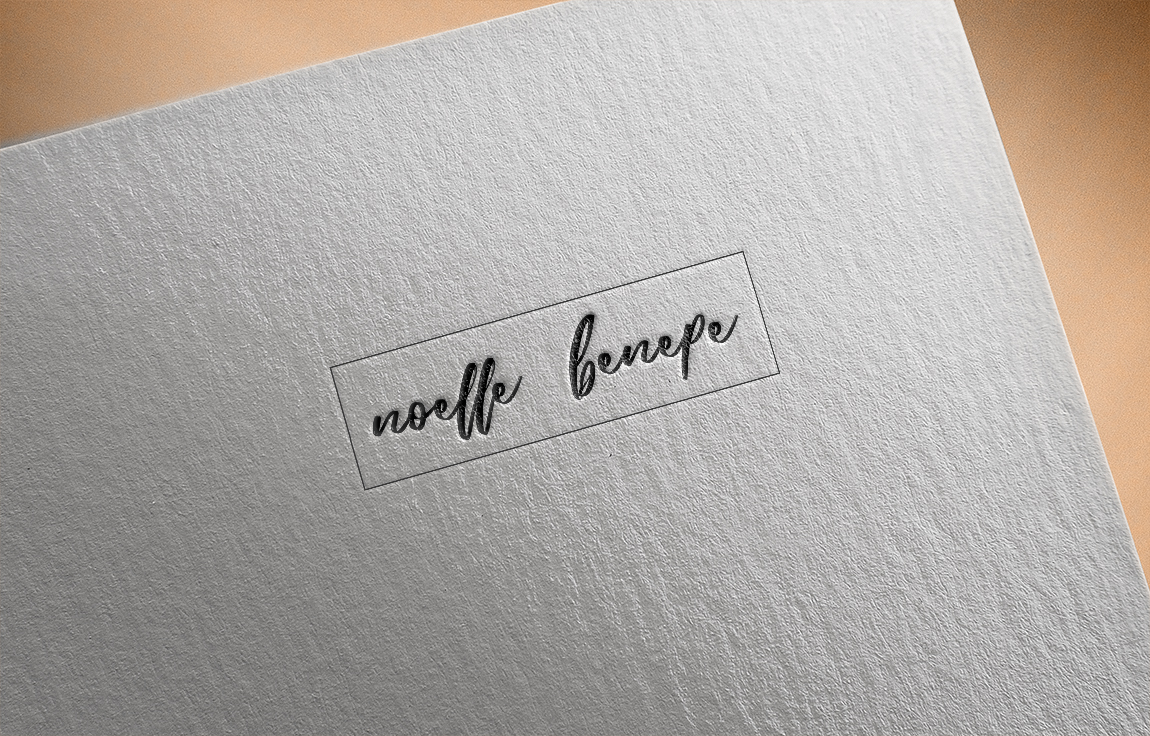 noelle benepe